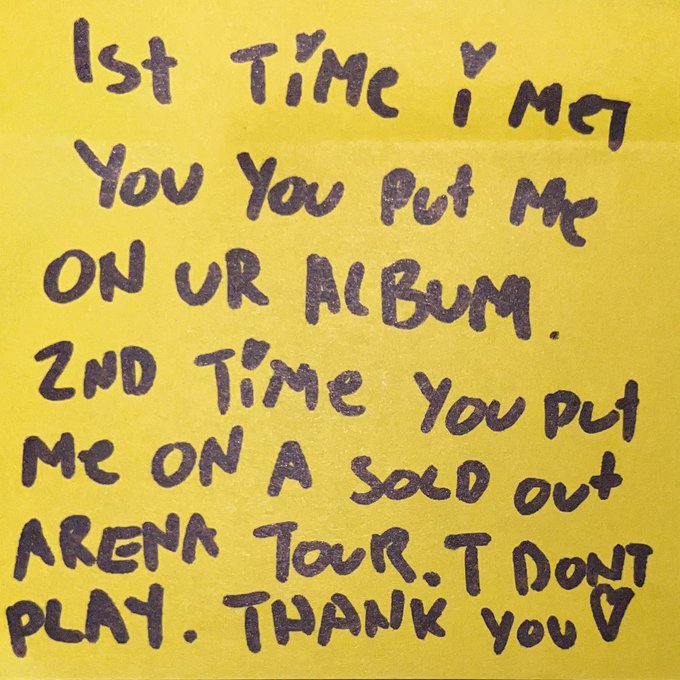 1st TiMe i MeT
You You Put Me
ON UR AlBUM.
2ND TiMe You Put
Me ON A SOLD Out
ARENA TOUR. T DONT
PLAY. THANK You